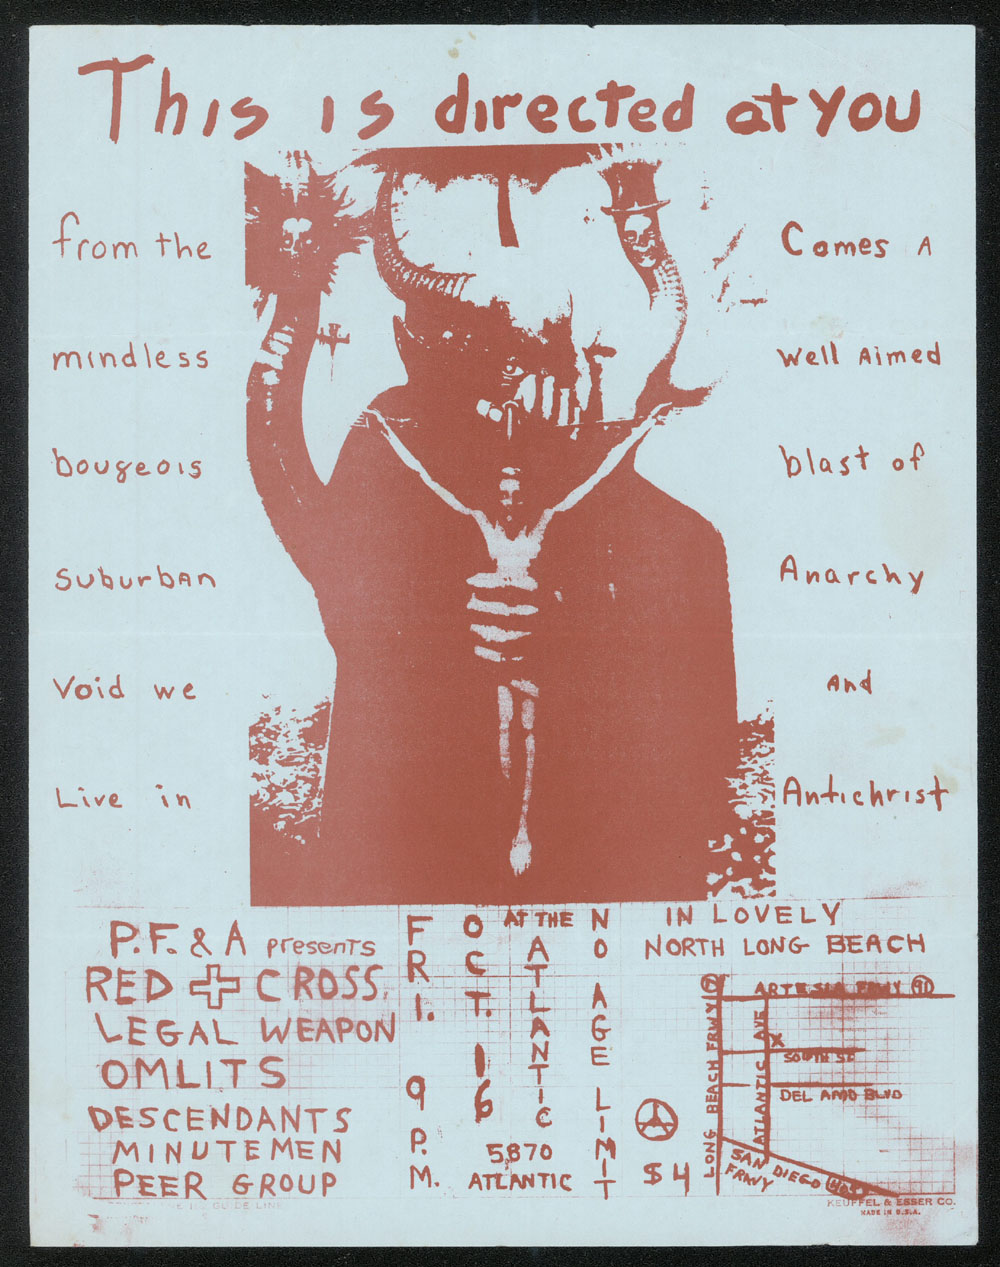 This is directed at you
from the
mindless
bougeois
suburban
Void we
Live in
Comes A
Well Aimed
blast of
Anarchy
And
Antichrist
P.F. & A presents
RED CROSS,
LEGAL WEAPON
OMLITS
DESCENDANTS
MINUTEMEN
PEER GROUP
FRI.
9 P.M.
OCT. 16
AT THE
ATLANTIC
5870
ATLANTIC
NO AGE LIMIT
IN LOVELY
NORTH LONG BEACH
$4
LONG BEACH FRWY 7
ARTESIA FRWY 91
ATLANTIC AVE
X
SOUTH ST
DEL AMO BLVD
SAN DIEGO
FRWY
KEUFFEL & ESSER CO.
MADE IN U.S.A.